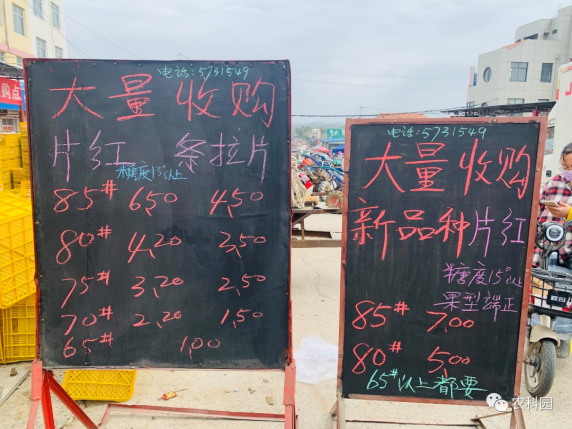 电话:5731549
大量收购
片红 条拉片
糖度15°以上
85# 6,50 4,50
80# 4,20 3,50
75# 3,20 2,50
70# 2,20 1,50
65# 1,00
电话:5731549
大量收购
新品种片红
糖度15°以上
果型端正
85# 7,00
80# 5,00
65#以上都要
购点
农科园